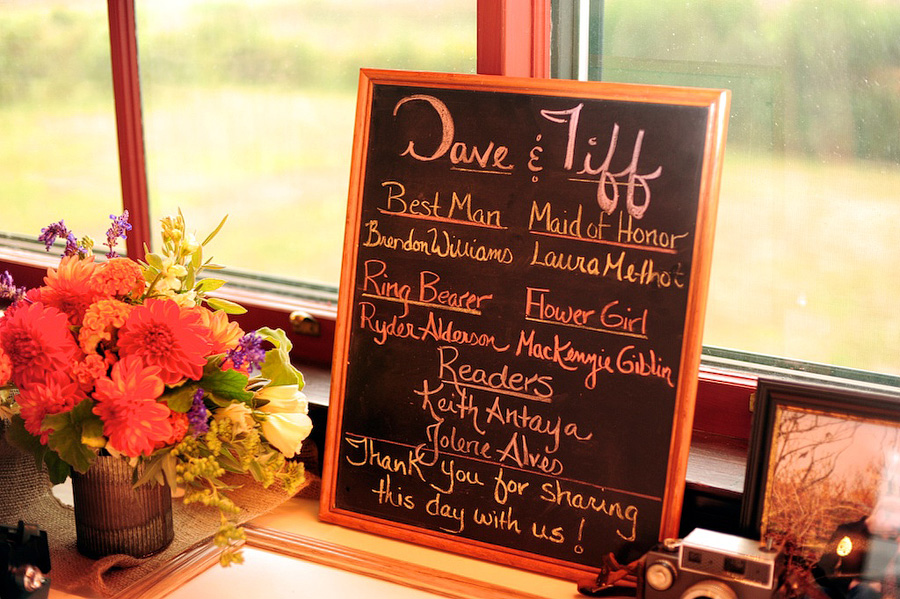 Dave & Tiff
Best Man
Maid of Honor
Brendon Williams
Laura Methot
Ring Bearer
Flower Girl
Ryder Alderson
MacKenzie Giblin
Readers
Keith Antaya
Jolene Alves
Thank you for sharing
this day with us!